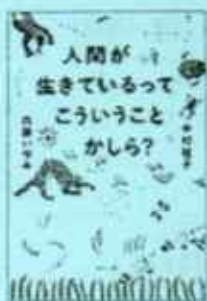 人間が
生きているって
こういうこと
かしら?
中村桂子
内藤いづみ